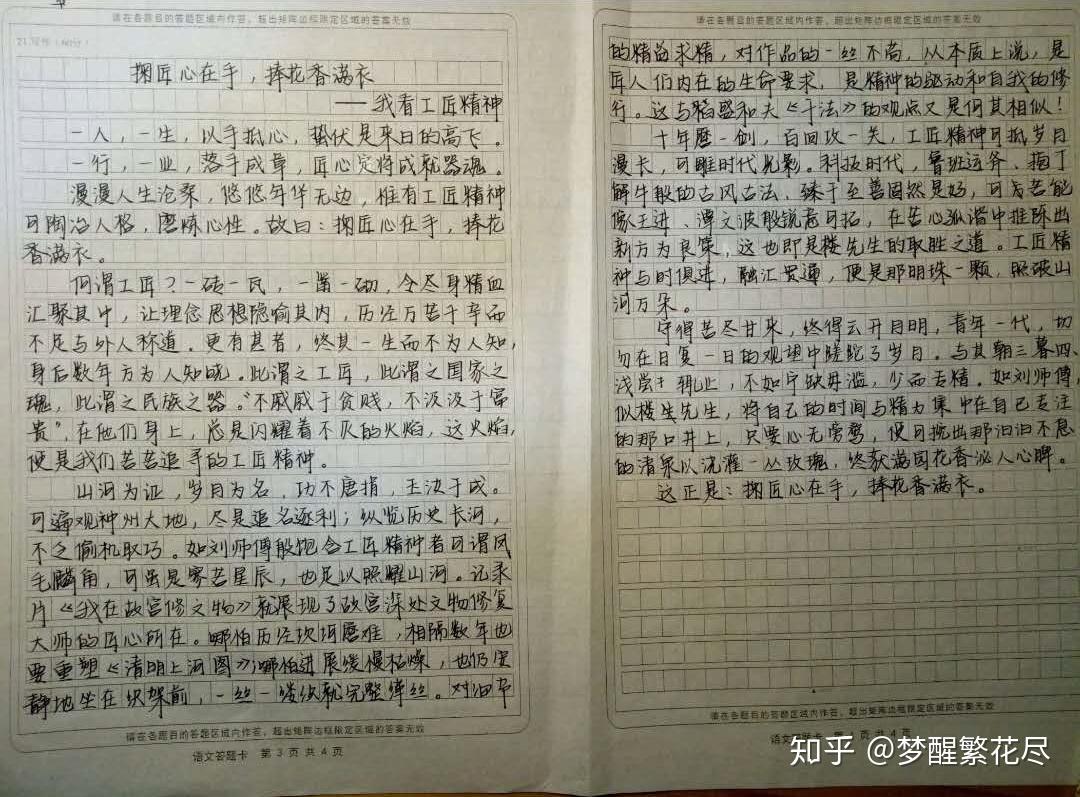 请在各题目的答题区域内作答，超出矩阵边框限定区域的答案无效
21.写作（60分）
掬匠心在手，捧花香满衣
——我看工匠精神
一人，一生，以手抵心，蛰伏是来日的高飞。
一行，一业，落手成章，匠心定将成就器魂。
漫漫人生沧桑，悠悠年华无边，惟有工匠精神
可陶冶人格，磨炼心性。故曰：掬匠心在手，捧花
香满衣。
何谓工匠？一砖一瓦，一凿一砌，令尽身精血
汇聚其中，让理念思想隐喻其内，历经万苦千辛而
不足与外人称道。更有甚者，终其一生而不为人知，
身后数年方为人知晓。此谓之工匠，此谓之国家之
魂，此谓之民族之器。“不戚戚于贫贱，不汲汲于富
贵”，在他们身上，总是闪耀着不灭的火焰，这火焰，
便是我们苦苦追寻的工匠精神。
山河为证，岁月为名，功不唐捐，玉汝于成。
可遍观神州大地，尽是追名逐利；纵览历史长河，
不乏偷机取巧。如刘师傅般饱含工匠精神者可谓凤
毛麟角，可虽是寥若星辰，也足以照耀山河。记录
片《我在故宫修文物》就展现了故宫深处文物修复
大师的匠心所在。哪怕历经坎坷磨难，相隔数年也
要重塑《清明上河图》；哪怕进展缓慢枯燥，也仍安
静地坐在织架前，一丝一缕织就完整缂丝。对细节
请在各题目的答题区域内作答，超出矩阵边框限定区域的答案无效
语文答题卡 第 3 页 共 4 页
请在各题目的答题区域内作答，超出矩阵边框限定区域的答案无效
的精益求精，对作品的一丝不苟，从本质上说，是
匠人们内在的生命要求，是精神的驱动和自我的修
行。这与稻盛和夫《干法》的观点又是何其相似！
十年磨一剑，百回攻一关，工匠精神可抵岁月
漫长，可雕时代光影。科技时代，鲁班运斧、庖丁
解牛般的古风古法、臻于至善固然是好，可若能
像王进、谭文波般锐意开拓，在苦心孤诣中推陈出
新方为良策，这也即是楼先生的取胜之道。工匠精
神与时俱进，融汇贯通，便是那明珠一颗，照破山
河万朵。
守得苦尽甘来，终得云开月明，青年一代，切
勿在日复一日的观望中蹉跎了岁月。与其朝三暮四、
浅尝辄止，不如宁缺毋滥，少而专精。如刘师傅，
似楼生先生，将自己的时间与精力集中在自己专注
的那口井上，只要心无旁骛，便可挖出那汩汩不息
的清泉以浇灌一丛玫瑰，终获满园花香沁人心脾。
这正是：掬匠心在手，捧花香满衣。
请在各题目的答题区域内作答，超出矩阵边框限定区域的答案无效
语文答题卡 第 4 页 共 4 页
知乎 @梦醒繁花尽